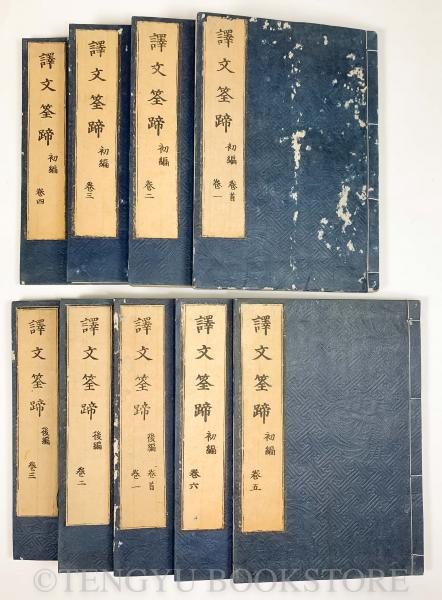 譯文筌蹄 初編 卷首 卷一
譯文筌蹄 初編 卷二
譯文筌蹄 初編 卷三
譯文筌蹄 初編 卷四
譯文筌蹄 初編 卷五
譯文筌蹄 初編 卷六
譯文筌蹄 後編 卷首 卷一
譯文筌蹄 後編 卷二
譯文筌蹄 後編 卷三
©TENGYU BOOKSTORE